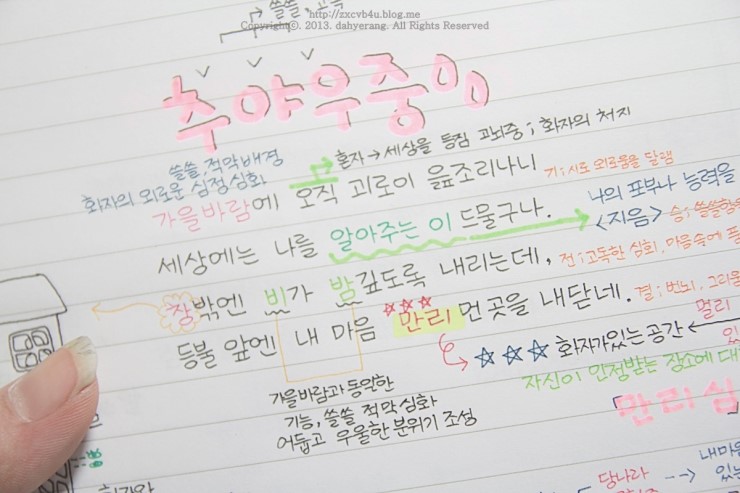 쓸쓸, 고독
http://zxcvb4u.blog.me
Copyright©. 2013. dahyerang. All Rights Reserved
추야우중
혼자 → 세상을 등짐 고뇌중 ; 화자의 처지
쓸쓸, 적막 배경
화자의 외로운 심정 심화
가을바람에 오직 괴로이 읊조리나니
기 ; 시로 외로움을 달램
나의 포부나 능력을
세상에는 나를 알아주는 이 드물구나.
<지음>
승 ; 쓸쓸함
창밖엔 비가 밤 깊도록 내리는데,
전 ; 고독한 심회, 마음속에 품
등불 앞엔 내 마음 만리 먼 곳을 내닫네.
결 ; 번뇌, 그리움
멀리
☆☆☆ 화자가 있는 공간 ←
있
자신이 인정받는 장소에 대
가을바람과 동일한
기능, 쓸쓸 적막 심화
어둡고 우울한 분위기 조성
만리심
내마음
당나라 --> 있는